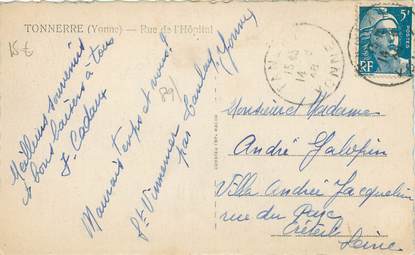 TONNERRE (Yonne) — Rue de l'Hôpital
15€
Meilleurs souvenirs
& bons baisers à tous
J. Cadoux
Mauvais temps et nous!
St Vinnemer par Tanlay, Yonne
5F
POSTES
RF
15 45
14
48
YONNE
Monsieur et Madame
André Galopin
Villa Andrée Jacqueline
rue du Puy
Créteil
Seine